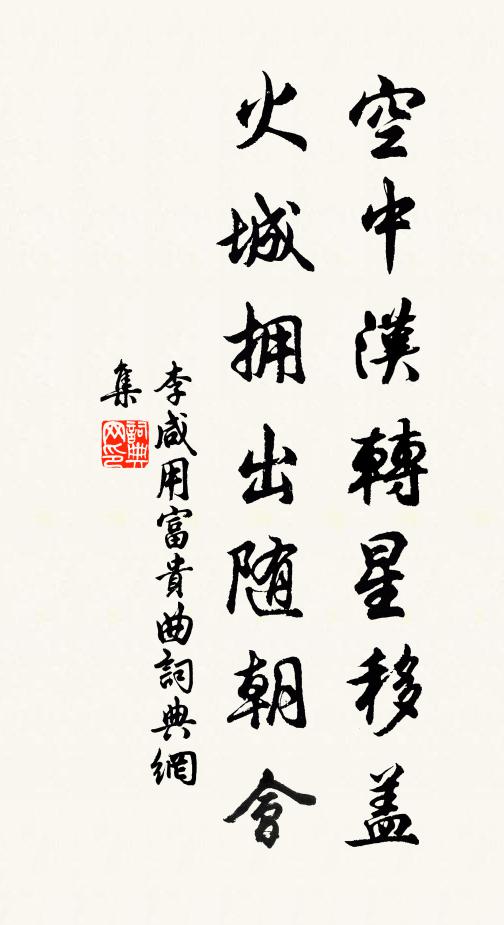 空中漢轉星移蓋
火城拥出随朝會
李咸用富貴曲詞典網
集
詞典
网印